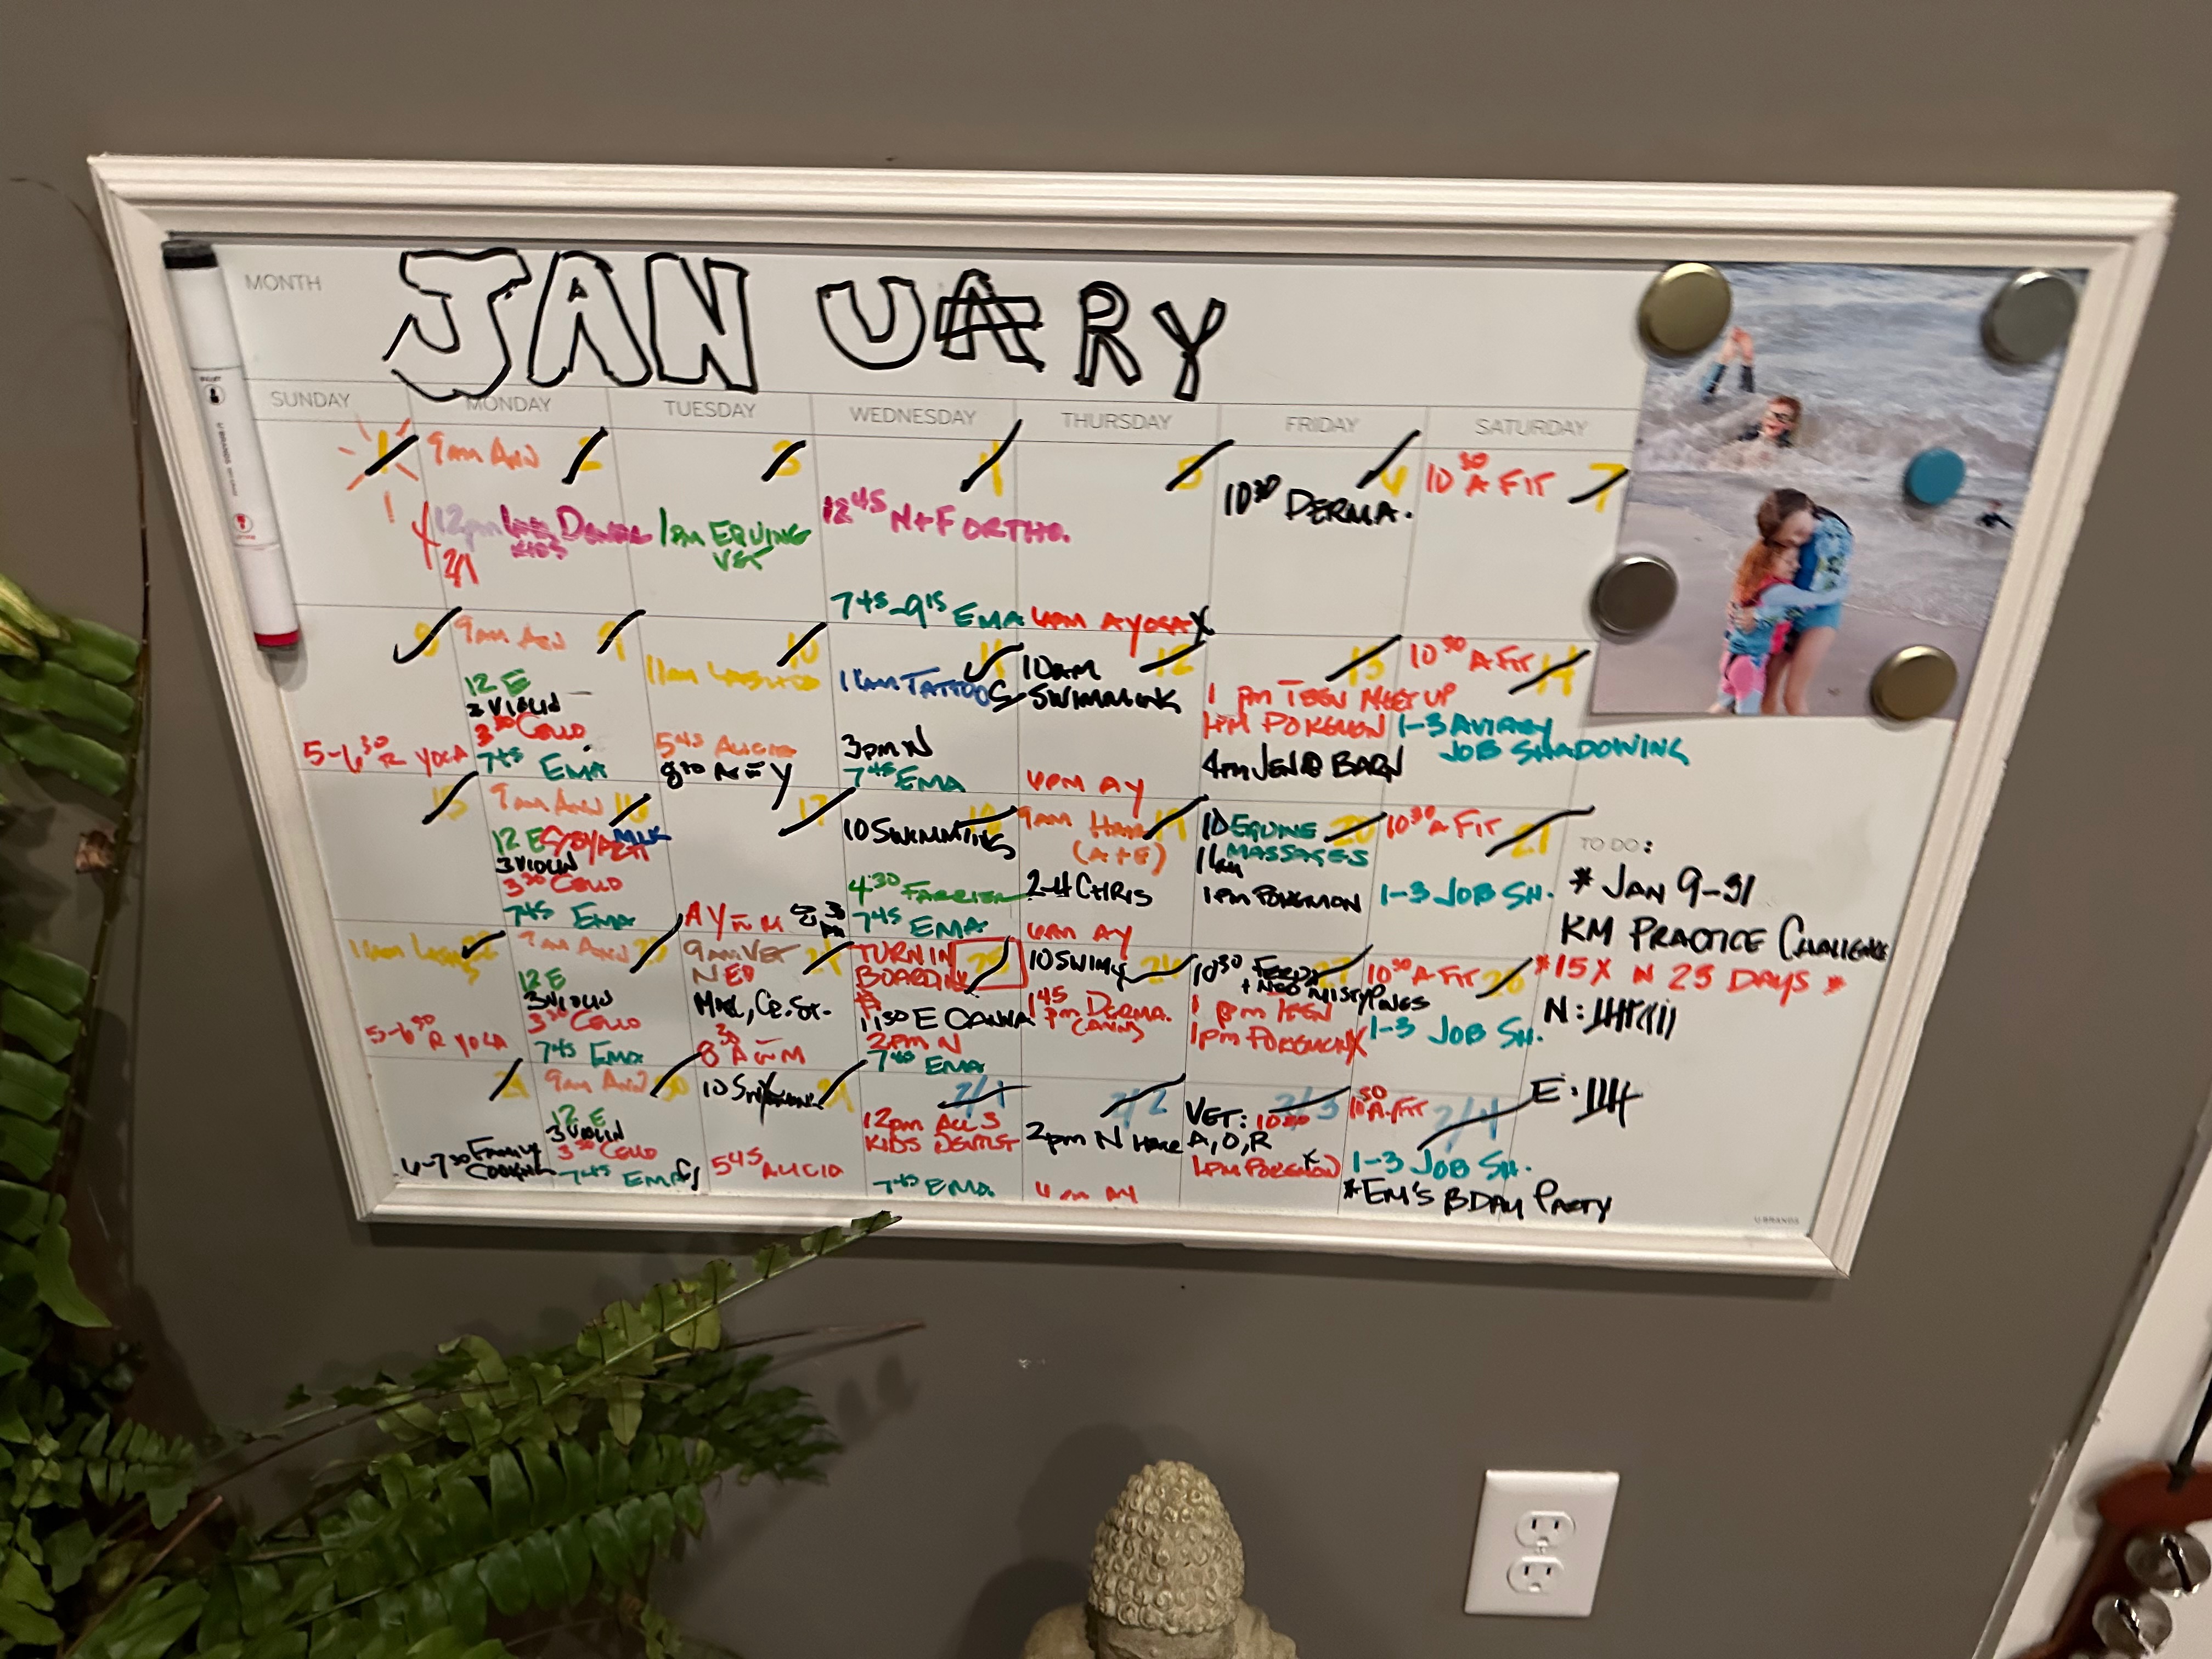 MONTH
JANUARY
SUNDAY MONDAY TUESDAY WEDNESDAY THURSDAY FRIDAY SATURDAY
1
2
9am Ann
12pm
KIDS
3
1pm EQUINE
VET
4
12 45 N+F ORTHO.
7 45 - 9 15 EMA
5
6PM A YOGA X
10 30 DERMA.
7
10 30 A FIT
8
5-6 30 R YOGA
9
9am Ann
12 E
3 VIOLIN
3 30 CELLO
7 45 EMA
10
11am
5 45 ALICIA
11
11am TATTOOS
3pm N
7 45 EMA
12
10am
SWIMMING
6PM AY
13
1 pm TEEN MEETUP
1PM POKEMON
4pm JEN @ BARN
14
10 30 A FIT
1-3 AVIARY
JOB SHADOWING
15
16
9am Ann
12 E
MLK
3 VIOLIN
3 30 CELLO
7 45 EMA
17
18
10 SWIMMING
4 30 FARRIER
7 45 EMA
19
9am
(A+E)
2-4 CHRIS
6PM AY
20
10 EQUINE
MASSAGES
1pm POKEMON
21
10 30 A FIT
1-3 JOB SH.
22
11am
5-6 30 R YOGA
23
9am Ann
12 E
3 VIOLIN
3 30 CELLO
7 45 EMA
24
9am VET
NED
25
TURN IN
BOARDING
11 30 E CANWA
2pm N
7 45 EMA
26
10 SWIM
1 45 DERMA.
pm
27
10 30
+ NED MISTY PINES
1 pm TEEN
1pm POKEMON X
28
10 30 A FIT
1-3 JOB SH.
29
6-7 30 FAMILY
COOKING
30
9am Ann
12 E
3 VIOLIN
3 30 CELLO
7 45 EMA
31
5 45 ALICIA
2/1
12pm ALL 3
KIDS DENTIST
7 45 EMA
2/2
2pm N
6pm AY
2/3
VET: 10 30
A, O, R
1PM POKEMON
2/4
10 30 A FIT
1-3 JOB SH.
*EM'S BDAY PARTY
TO DO:
* JAN 9-31
KM PRACTICE CHALLENGE
*15 X N 23 DAYS *
N:
E:
U BRANDS